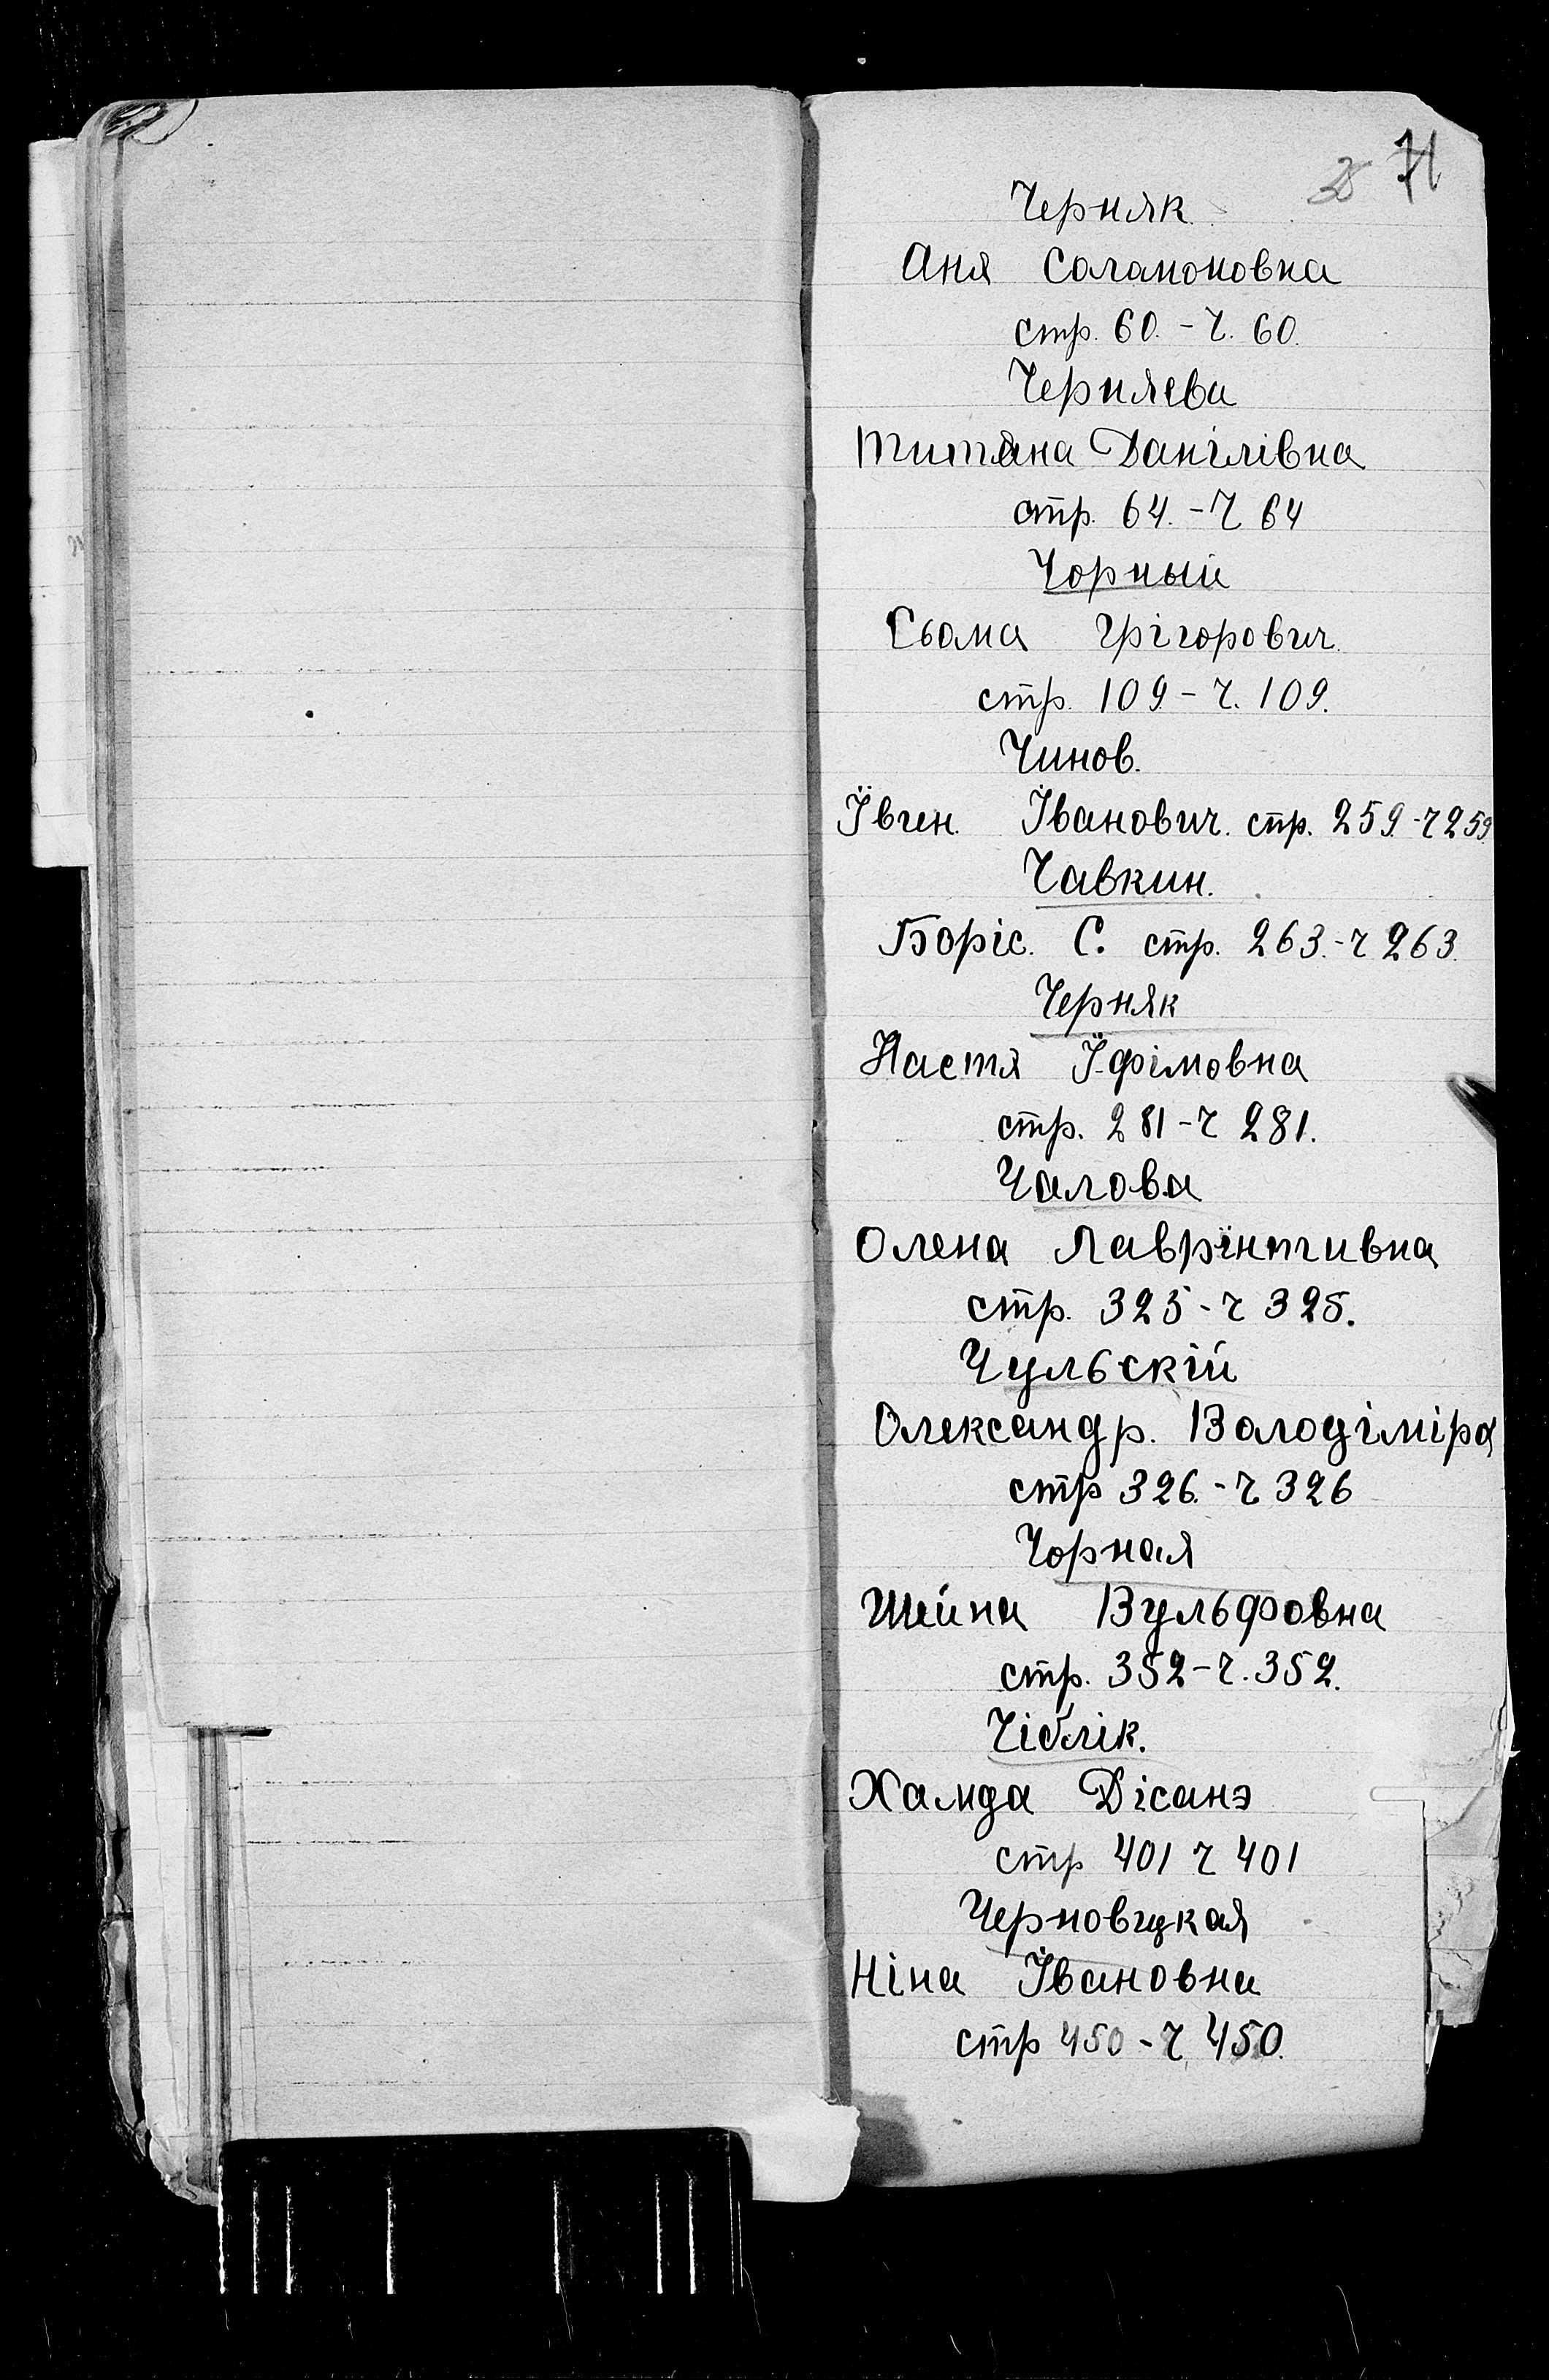 71
Черняк
Аня Саламоновна
стр. 60. - Ч. 60.
Черняева
Титяна Данілівна
стр. 64. - Ч 64
Чорный
Сьома Грігорович.
стр. 109 - Ч. 109.
Чинов.
Ївген. Їванович. стр. 259 - Ч 259.
Чавкин.
Боріс. С. стр. 263. - Ч 263.
Черняк
Настя Їфімовна
стр. 281 - Ч 281.
Чалова
Олена Лаврїнтивна
стр. 325 - Ч 325.
Чульскій
Олександр. Володіміра
стр 326. - Ч 326
Чорная
Шейна Вульфовна
стр. 352 - Ч. 352.
Чіблік.
Хамда Дісанэ
стр 401 Ч 401
Черновцкая
Ніна Їванoвна
стр 450 - Ч 450.